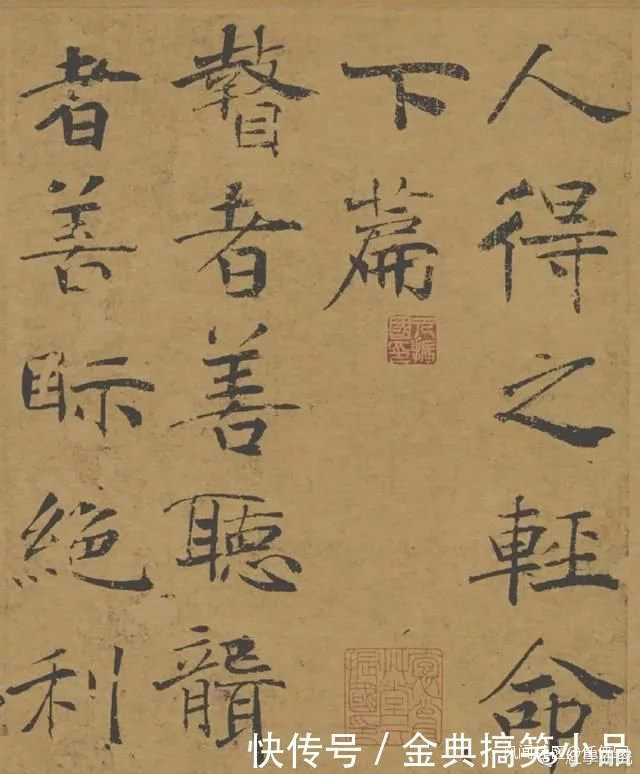 人得之輕命
下篇
瞽者善聽聾
者善眎絶利
快传号／金典搞笑小品